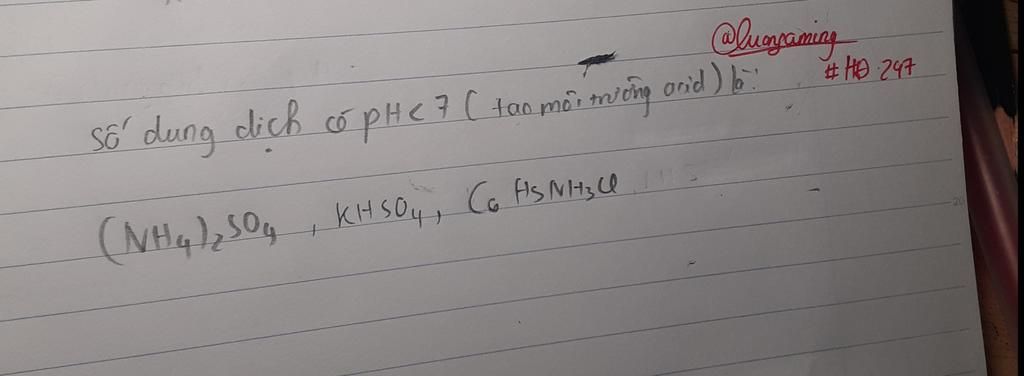 @luongaming
#HĐ 247
Số dung dịch có pH < 7 (tạo môi trường acid) là:
(NH4)2SO4, KHSO4, C6H5NH3Cl